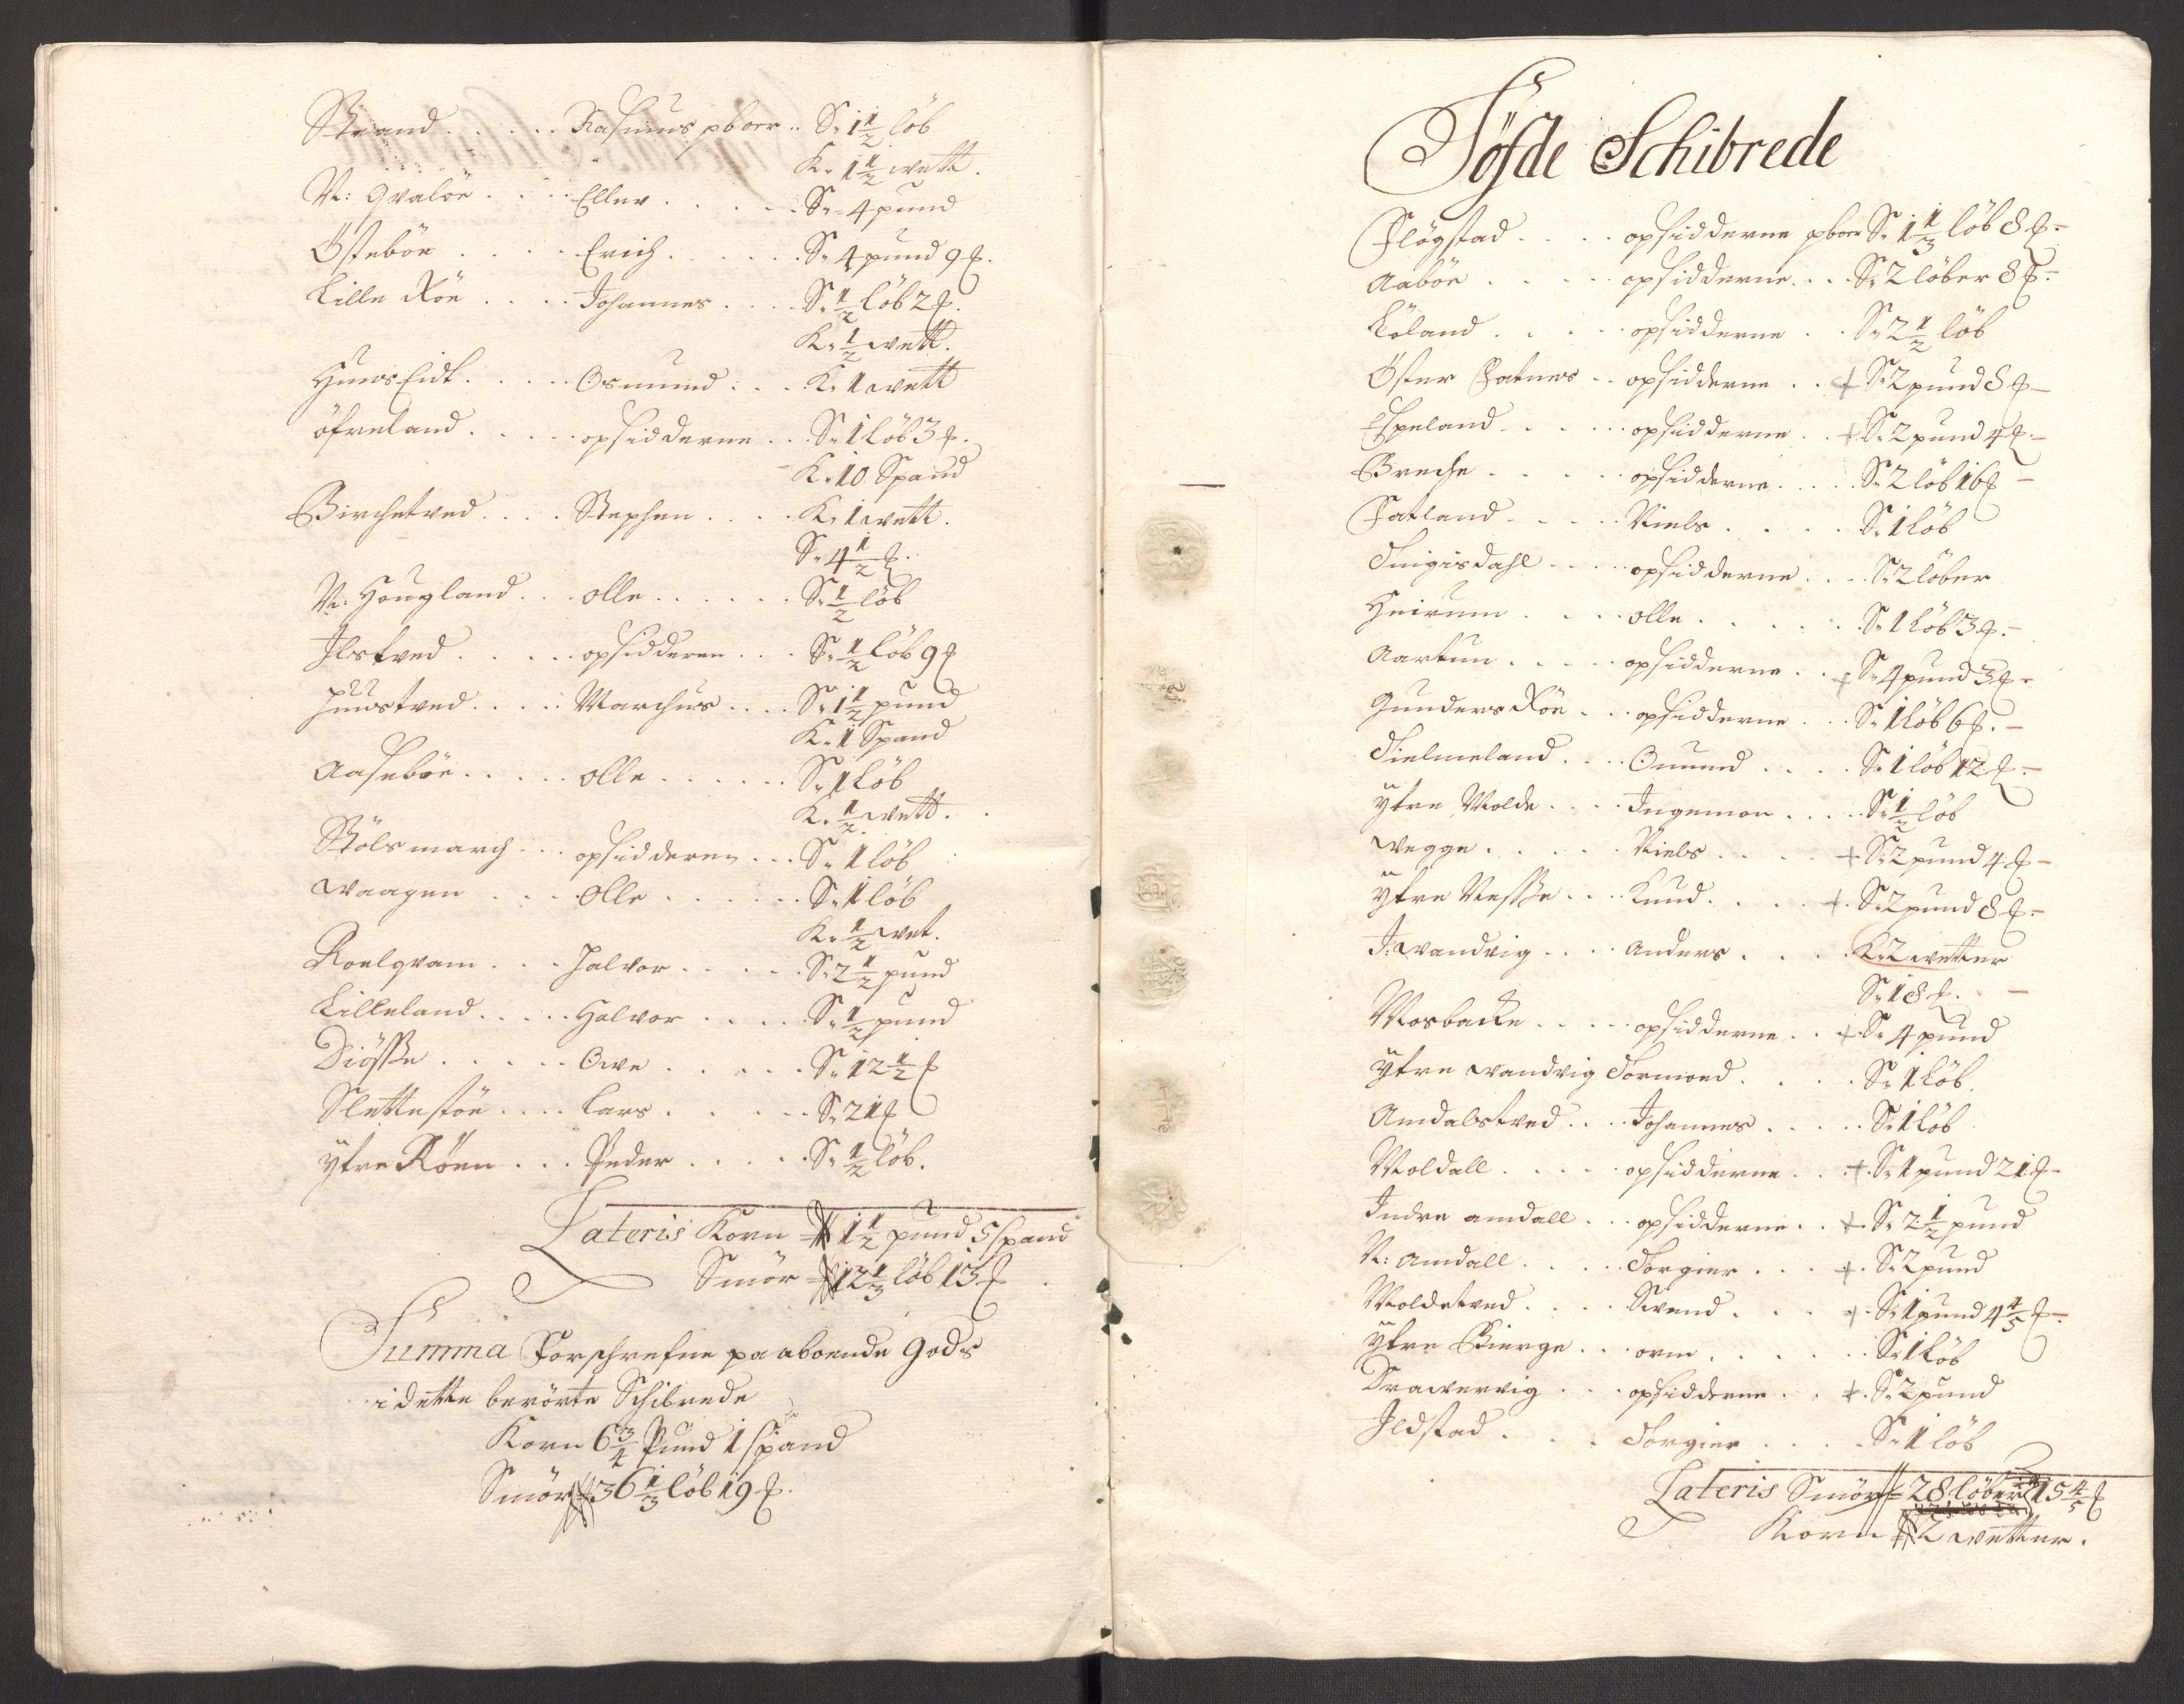 Strand . . . . . Rasmus pboer . . S: 1 1/2 löb
K: 1 1/2 wett.
N: Qvalöe . . . . Ellev . . . . . S: 4 pund
Östeböe . . . . Erich . . . . . . S: 4 pund 9 ℔.
Lille Röe . . . . Johannes . . . . S: 1/2 löb 2 ℔.
K: 1/2 wett.
HunsEidt . . . . . Osmund . . . K: 1 wett
öfreland . . . . . opsidderne . . . S: 1 löb 3 ℔.
K: 10 Spand
Birchetved . . . . Stephen . . . . K: 1 wett.
S: 4 1/2 ℔.
N: Hougland . . . olle . . . . . . S: 1/2 löb
Ilstved . . . . . opsidderen . . . S: 1/2 löb 9 ℔
Juustved . . . . . Marchus . . . . S: 1 1/2 pund
K: 1 Spand
Aaseböe . . . . . olle . . . . . . S: 1 löb
K: 1/2 wett.
Stölsmarch . . . opsidderen . . . S: 1 löb
Waagen . . . . olle . . . . . . S: 1 löb
K: 1/2 wet.
Roelqvam . . . Halvor . . . . . S: 2 1/2 pund
Lilleland . . . . . Halvor . . . . . S: 1/2 pund
Diösse . . . . . Owe . . . . . S: 12 1/2 ℔
Slettestöe . . . . Lars . . . . . . S: 21 ℔
ÿtre Röen . . . Peder . . . . . S: 1/2 löb.
Lateris Korn 1 1/2 pund 5 spand
Smör 12 1/3 löb 13 ℔
Summa Forschrefne paaboende Gods
i dette berörte Schibrede
Korn 6 3/4 Pund 1 spand
Smör 36 1/3 löb 19 ℔.
Söfde Schibrede
Flögstad . . . . opsidderne pboer S: 1 1/3 löb 8 ℔ -
Aaböe . . . . . opsidderne . . . S: 2 löber 8 ℔ -
Löland . . . . . opsidderne . . S: 2 1/2 löb
Öster Fatnes . . opsidderne . . + S: 2 pund 8 ℔ -
Espeland . . . . . opsidderne . . + S: 2 pund 4 ℔ -
Breche . . . . . opsidderne . . . . S: 2 löb 16 ℔ -
Fatland . . . . . Niels . . . . S: 1 löb
Tingisdahl . . . . opsidderne . . . S: 2 löber
Heirum . . . . olle . . . . . . S: 1 löb 3 ℔. -
Aartun . . . . . opsidderne . . + S: 4 pund 3 ℔ -
Gunders Röe . . opsidderne . . . S: 1 löb 6 ℔. -
Tielmeland . . . . Omund . . . . S: 1 löb 12 ℔ -
ÿtre Molde . . . . Ingemon . . . . S: 1/2 löb
Wegge . . . . . Niels . . . . + S: 2 pund 4 ℔ -
ÿtre Nesse . . . . Knud . . . . + S: 2 pund 8 ℔ -
I: Wandvig . . . . Anders . . . . K: 2 wetter
S: 18 ℔. -
Mosbacke . . . . . opsidderne . . + S: 4 pund
ÿtre Wandvig Tormoed . . . . S: 1 löb
Amdalstved . . . Johannes . . . . . S: 1 löb
Moldall . . . . . opsidderne . . + S: 1 pund 21 ℔ -
Indre amdall . . . opsidderne . . + S: 2 1/2 pund
N: Amdall . . . . . Torgier . . . + S: 2 pund
Moldetved . . . . Svend . . . + S: 1 pund 4 4/5 ℔ -
ÿtre Bierge . . . orm . . . . . . S: 1 löb
Drawervig . . . opsidderne . . + S: 2 pund
Ildstad . . . . Torgier . . . . . S: 1 löb
Lateris Smör 28 löber 15 4/5 ℔
Korn 2 wetter.